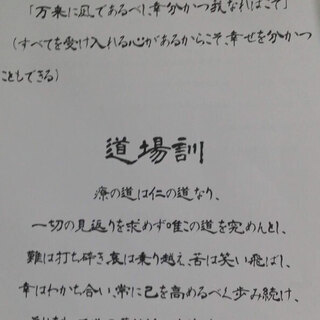 「万来に凪であるべし、幸分かつ我なればこそ」
(すべてを受け入れる心があるからこそ、幸せを分かつ
ことしできる)
道場訓
療の道は仁の道なり、
一切の見返りを求めず唯この道を究めんとし、
難は打ち砕き、哀は乗り越え、苦は笑い飛ばし、
幸はわかち合い、常に己を高めるべく歩み続け、